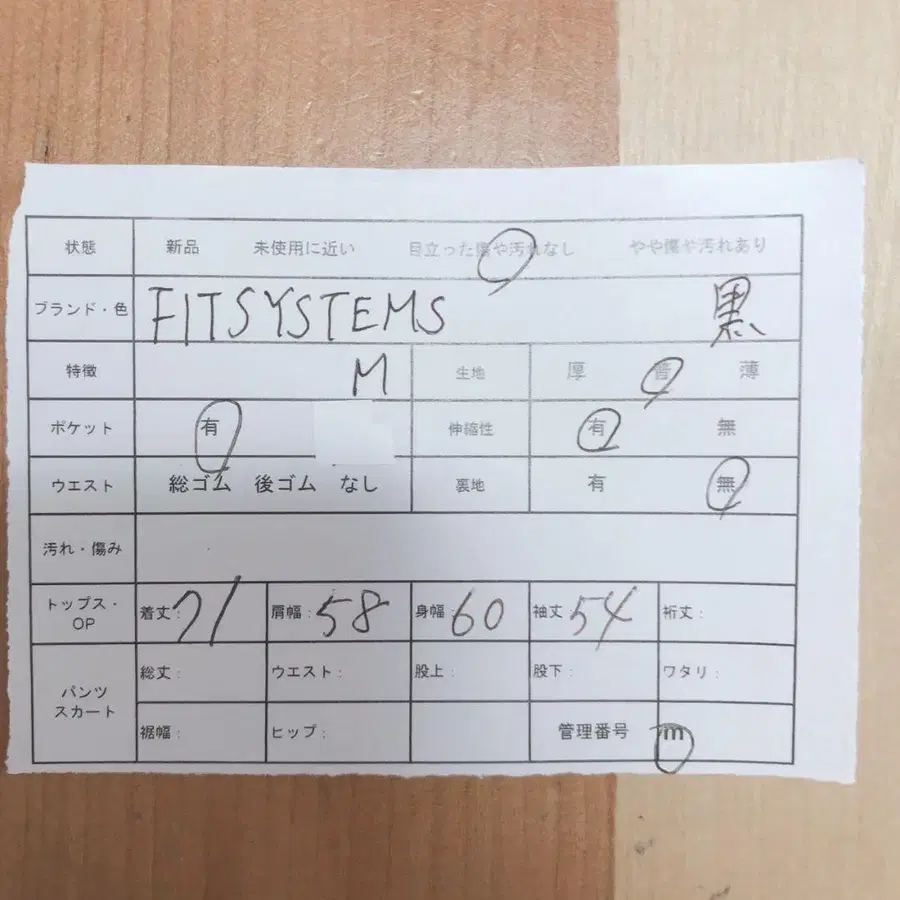 状態 新品 未使用に近い 目立った傷や汚れなし やや傷や汚れあり
ブランド・色 FITSYSTEMS 黒
特徴 M 生地 厚 普 薄
ポケット 有 伸縮性 有 無
ウエスト 総ゴム 後ゴム なし 裏地 有 無
汚れ・傷み
トップス・OP 着丈: 71 肩幅: 58 身幅 60 袖丈: 54 裄丈:
パンツ スカート
総丈: ウエスト: 股上: 股下: ワタリ:
裾幅: ヒップ: 管理番号 m